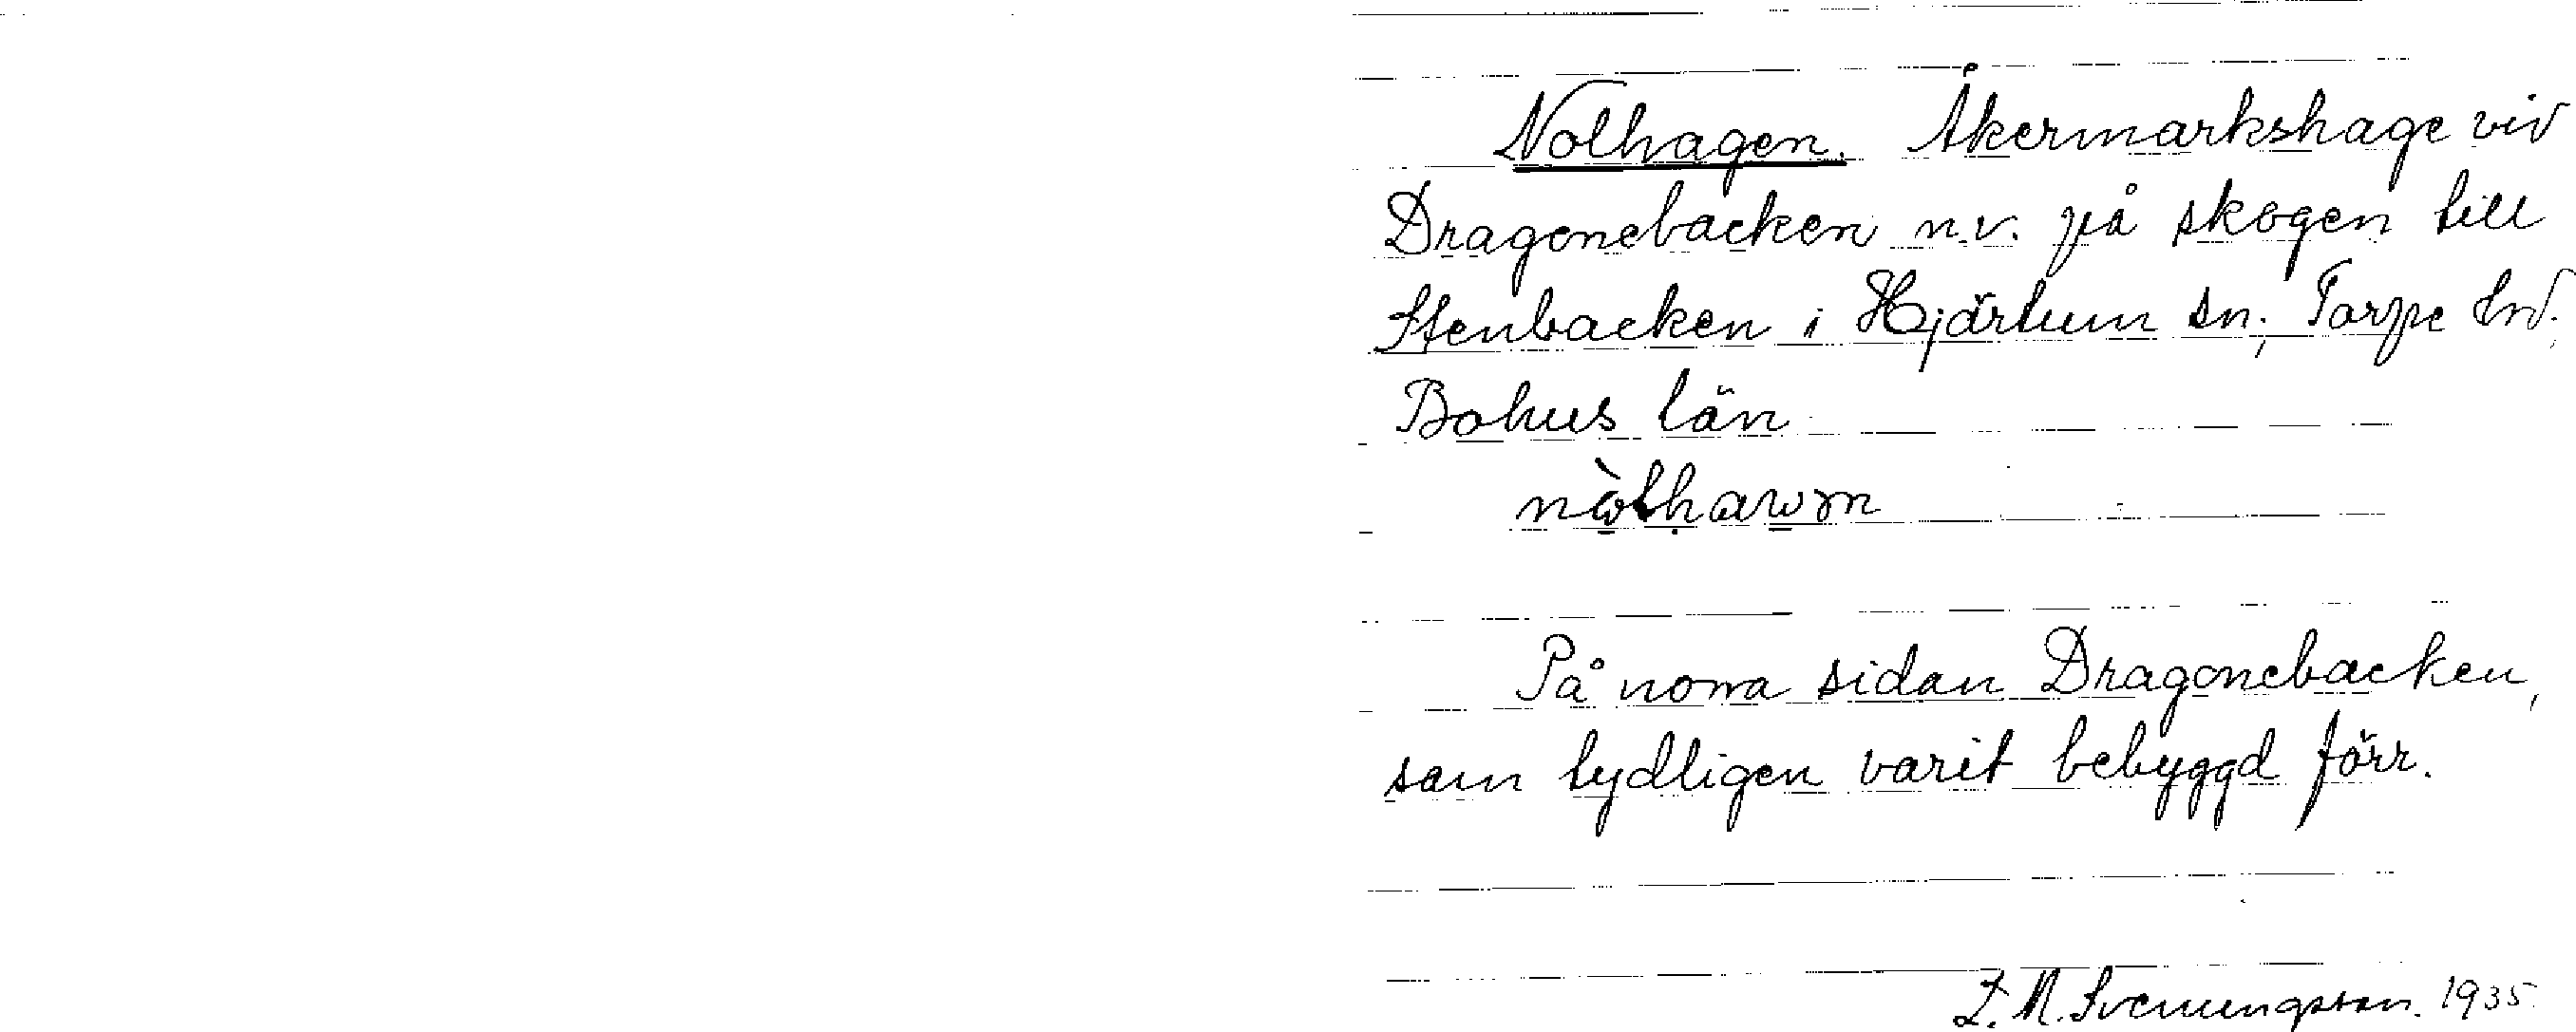 Nolhagen. Åkermarkshage vid
Dragonebacken n.v. på skogen till
Stenbacken i Hjärtum sn; Torpe hd.
Bohus län
På norra sidan Dragonebacken,
som tydligen varit bebyggd förr.
Svenungsson. 1935